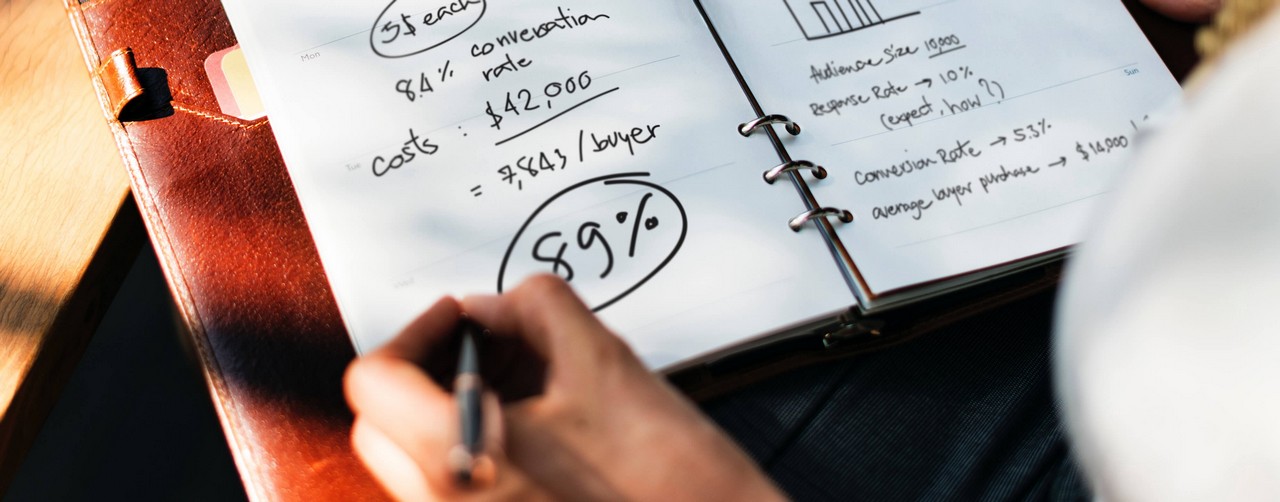 5$ each
8.4% conversation
rate
costs : $42,000
= 7,843 / buyer
89%
Mon
Tue
Audience Size 10,000
Response Rate → 10%
(expect, how?)
Sun
Conversion Rate → 5.3%
average buyer purchase → $14,000